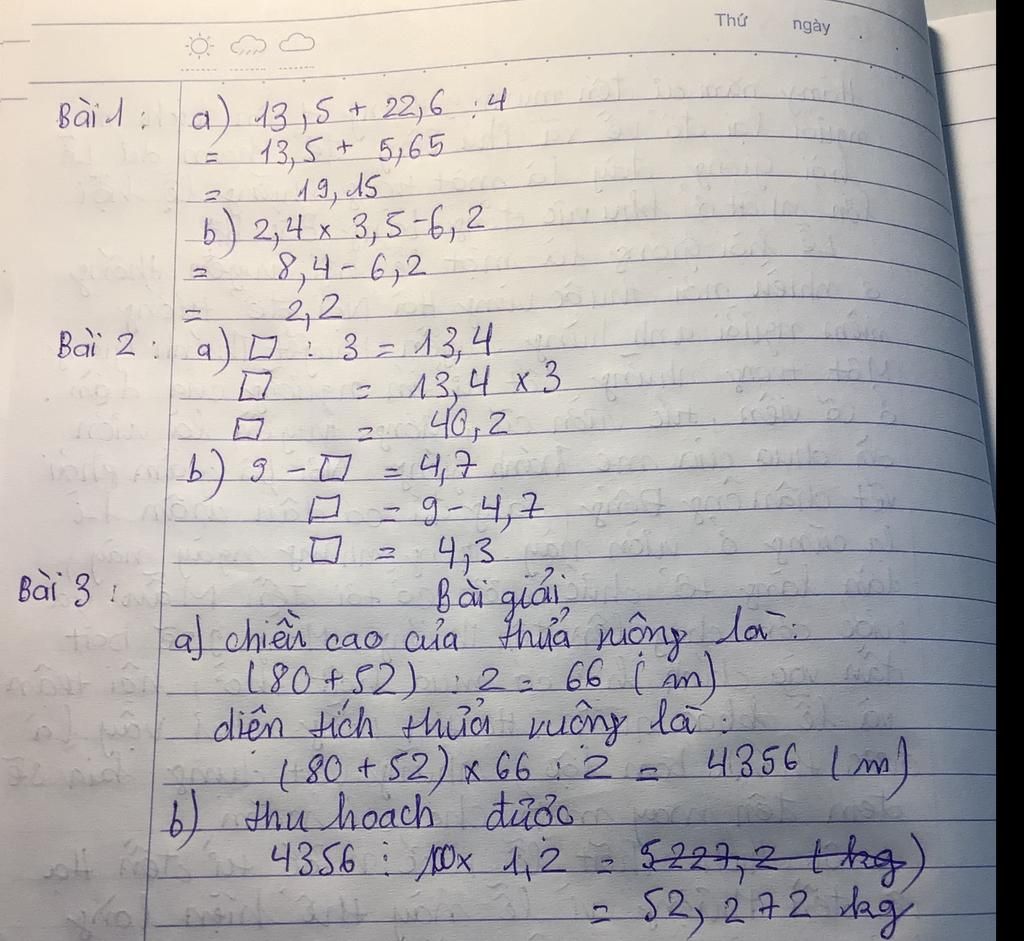 Thứ ngày
Bài 1 : a) 13,5 + 22,6 : 4
= 13,5 + 5,65
= 19,15
b) 2,4 x 3,5 - 6,2
= 8,4 - 6,2
= 2,2
Bài 2 : a) □ : 3 = 13,4
□ = 13,4 x 3
□ = 40,2
b) 9 - □ = 4,7
□ = 9 - 4,7
□ = 4,3
Bài 3 : Bài giải
a) chiều cao của thửa ruộng là :
(80 + 52) : 2 = 66 (m)
diện tích thửa ruộng là :
(80 + 52) x 66 : 2 = 4356 (m)
b) thu hoạch được
4356 : 100 x 1,2 = 5227,2 (kg)
= 52,272 kg